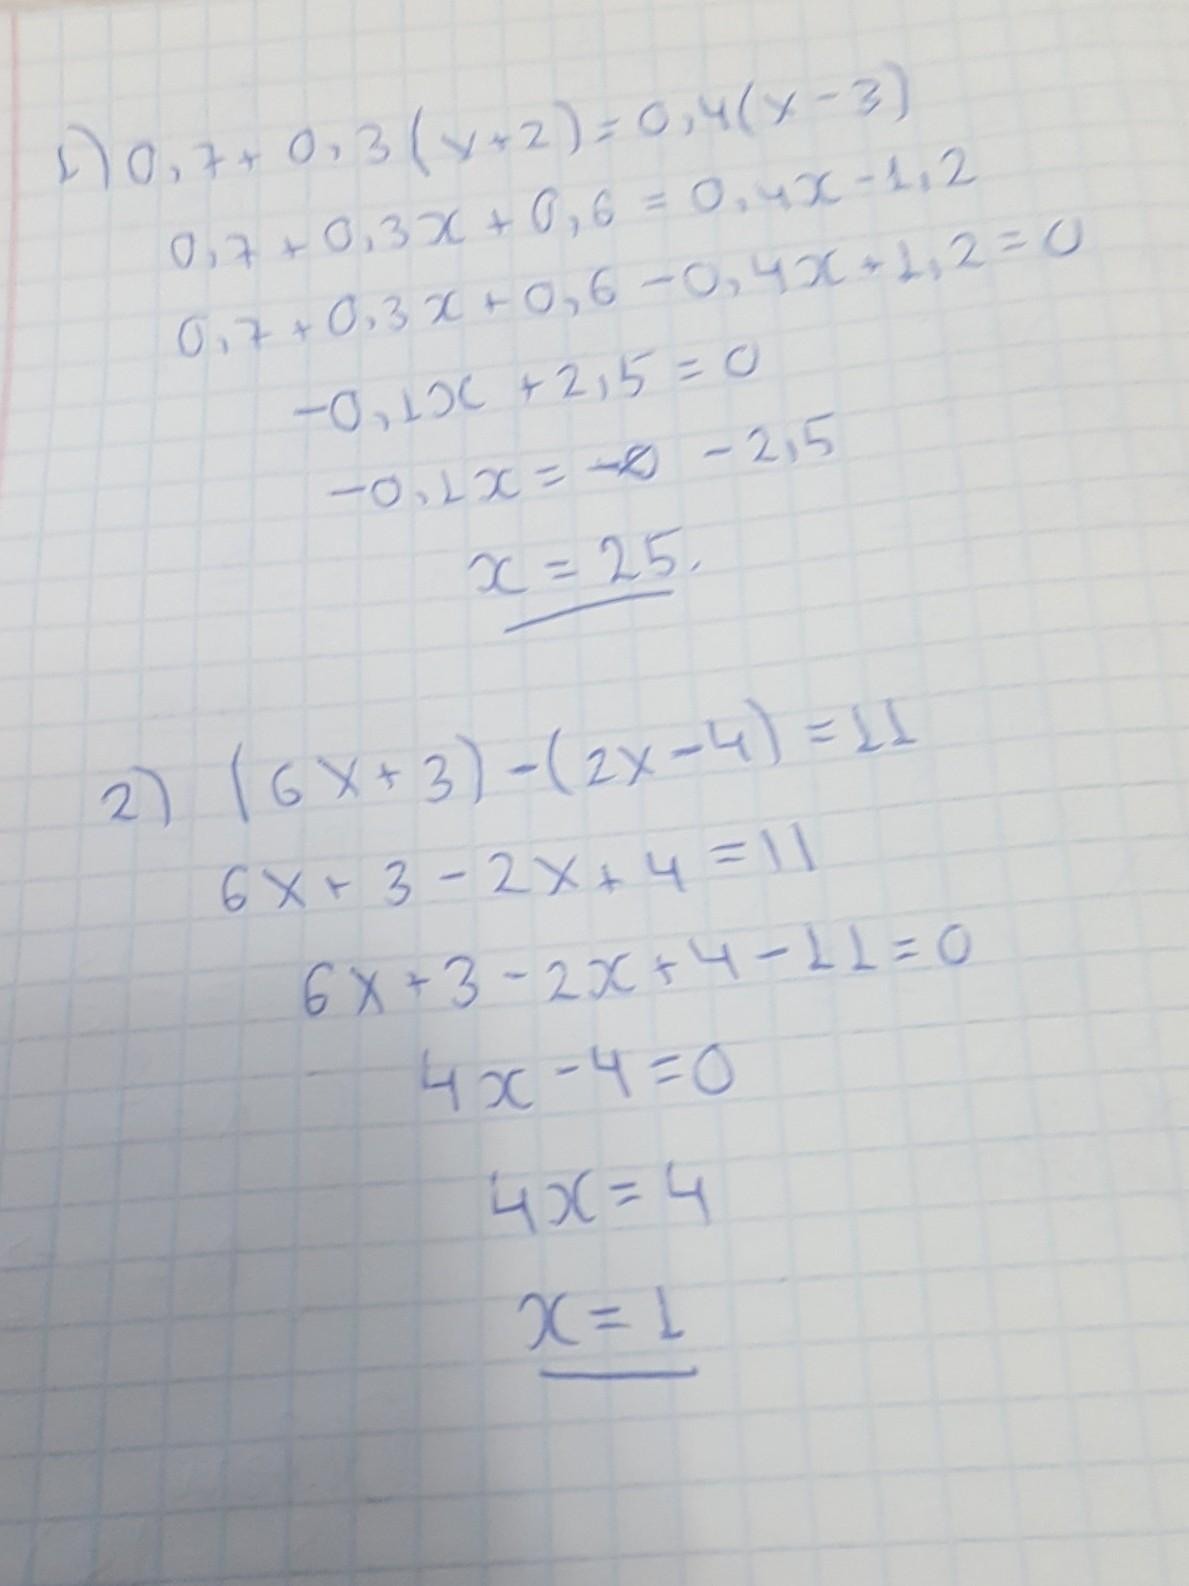 1) 0,7+0,3(x+2)=0,4(x-3)
0,7+0,3x+0,6=0,4x-1,2
0,7+0,3x+0,6-0,4x+1,2=0
-0,1x+2,5=0
-0,1x= -2,5
x=25.
2) (6x+3)-(2x-4)=11
6x+3-2x+4=11
6x+3-2x+4-11=0
4x-4=0
4x=4
x=1